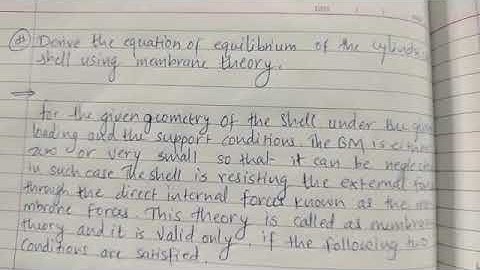 # Derive the equation of equilibrium of the
shell using membrane theory.
for the given geometry of the shell under the
loading and the support conditions. The BM is
zero or very small so that it can be
in such case The shell is resisting the external
through the direct internal forces known as the
mbrane forces. This theory is called as
theory and it is valid only, if the following two
conditions are satisfied.